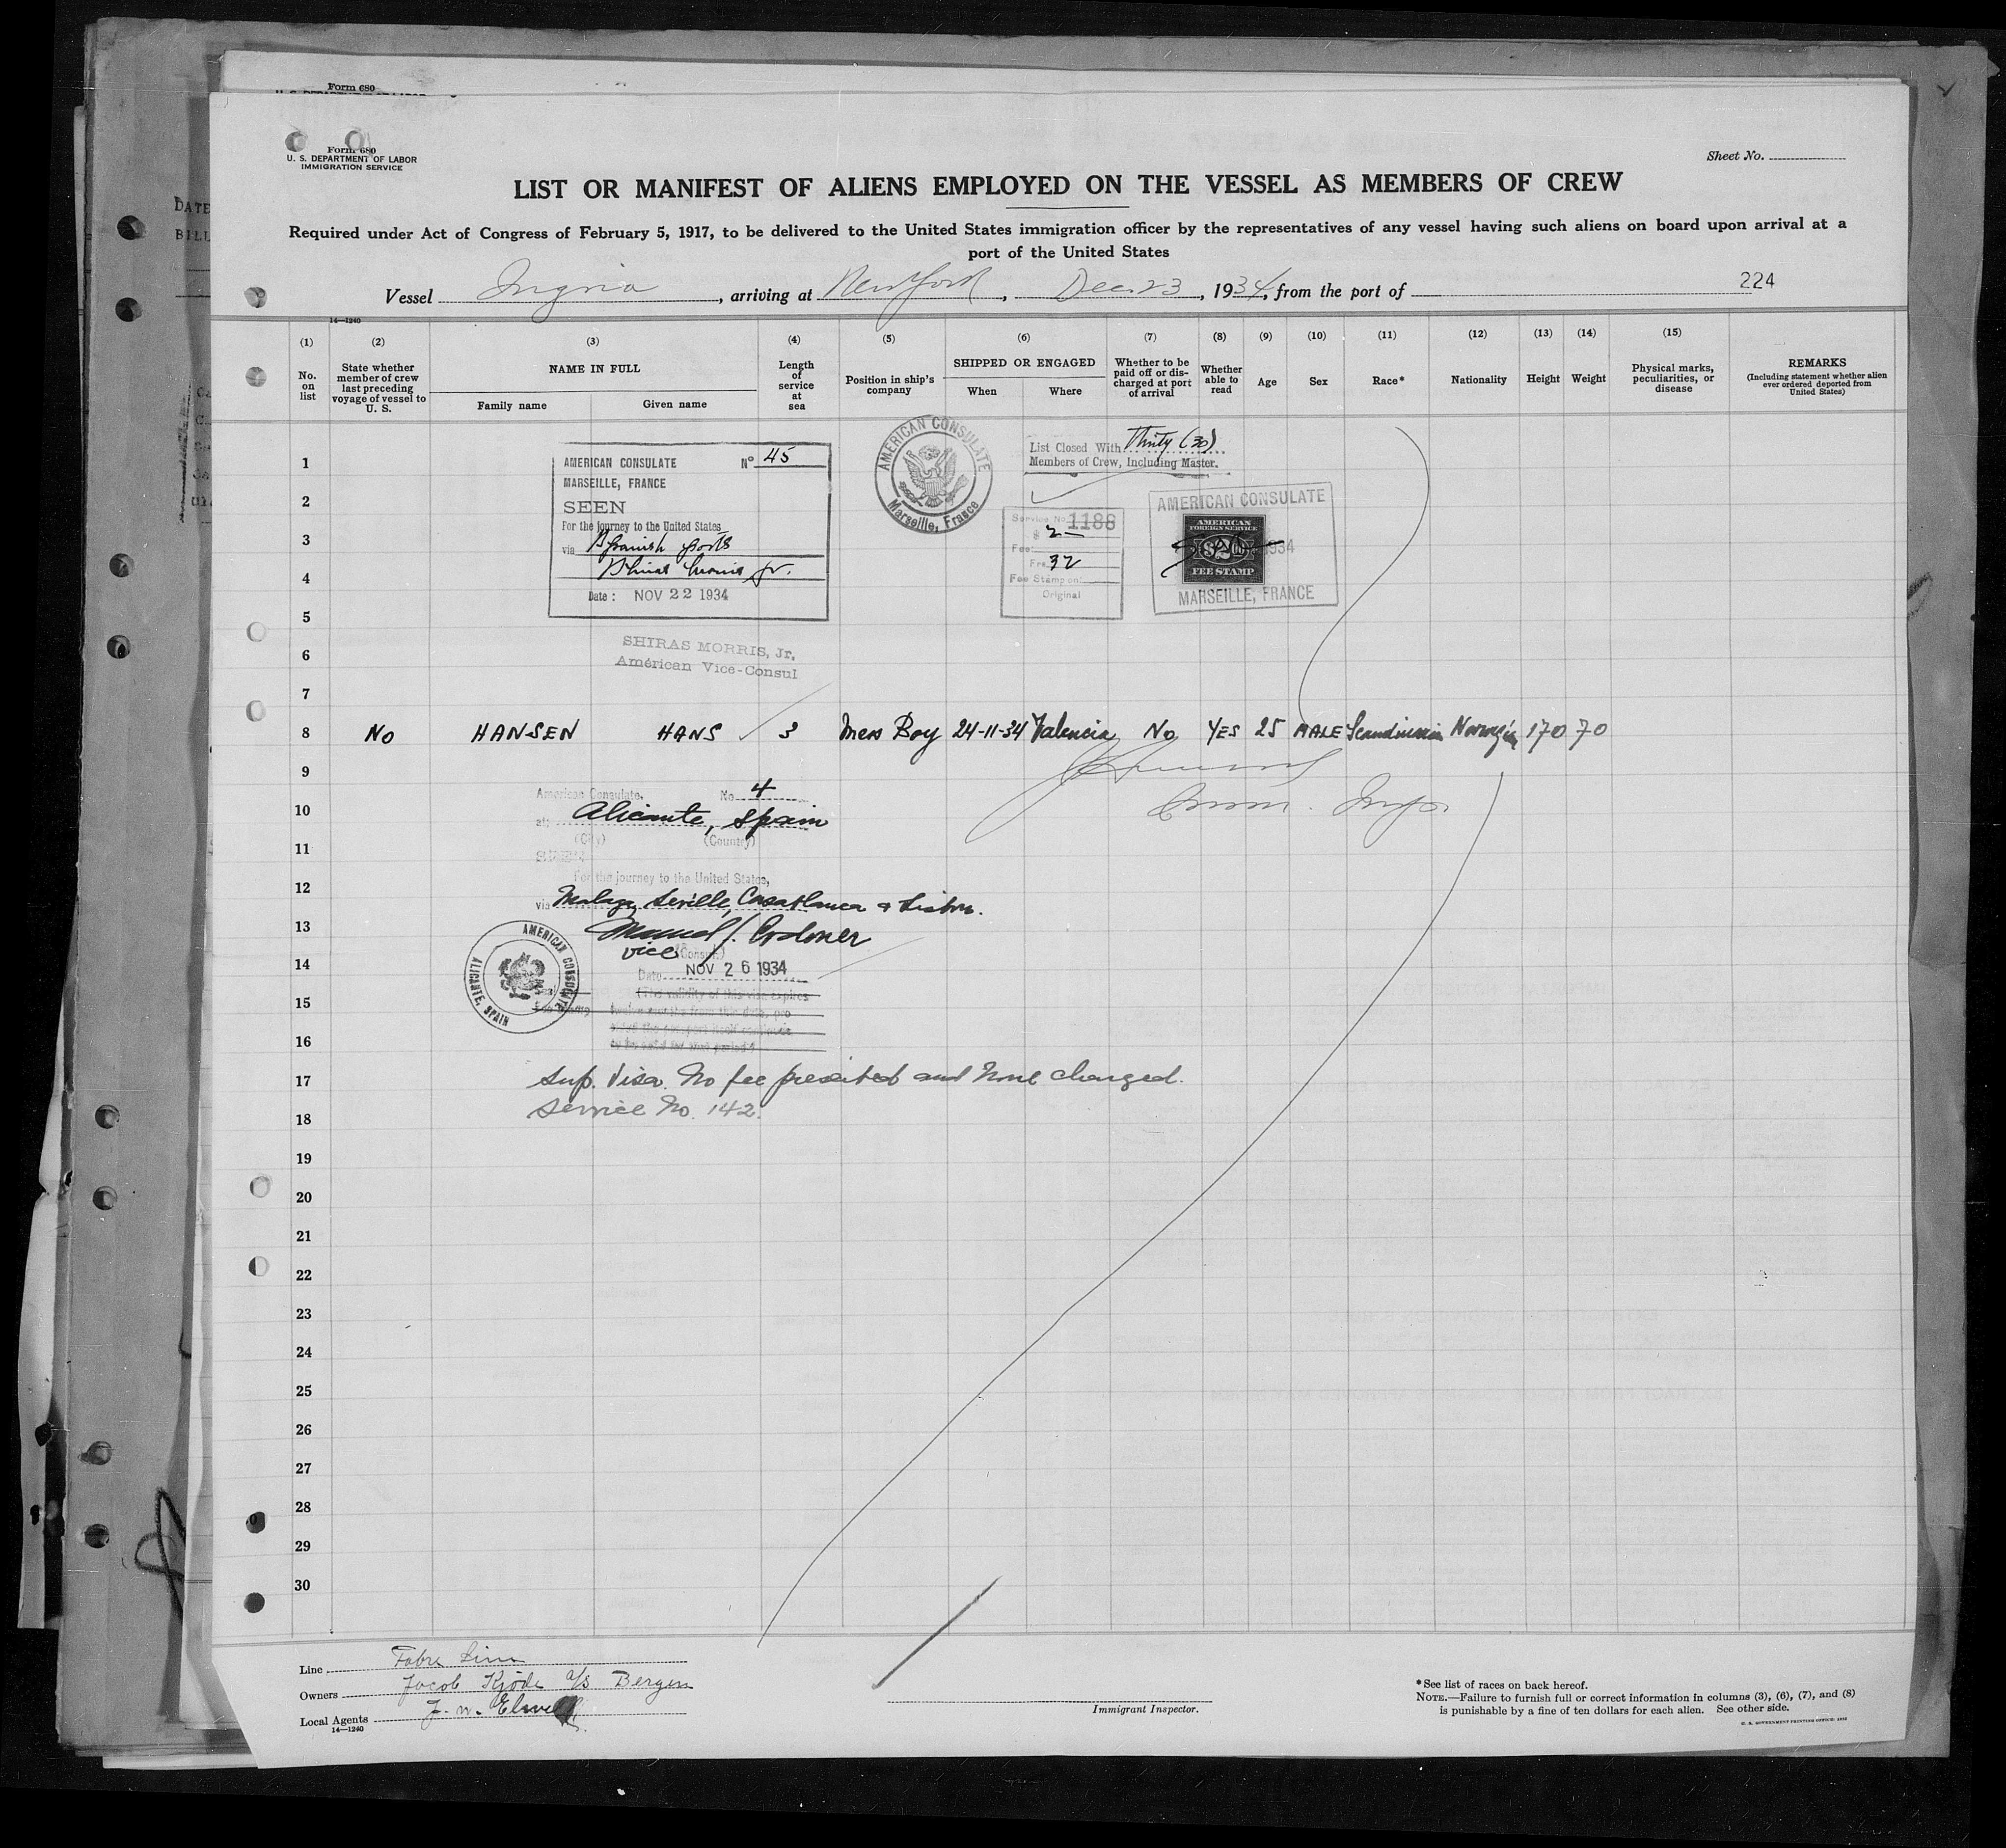 Form 680
DATE
BILL
Form 680
U. S. DEPARTMENT OF LABOR
IMMIGRATION SERVICE
Sheet No.
LIST OR MANIFEST OF ALIENS EMPLOYED ON THE VESSEL AS MEMBERS OF CREW
Required under Act of Congress of February 5, 1917, to be delivered to the United States immigration officer by the representatives of any vessel having such aliens on board upon arrival at a
port of the United States
Vessel Ingria, arriving at New York, Dec. 23, 1934, from the port of 224
14—1240
(1) (2) (3) (4) (5) (6) (7) (8) (9) (10) (11) (12) (13) (14) (15)
No. on list
State whether member of crew last preceding voyage of vessel to U. S.
NAME IN FULL
Family name Given name
Length of service at sea
Position in ship's company
SHIPPED OR ENGAGED
When Where
Whether to be paid off or discharged at port of arrival
Whether able to read
Age
Sex
Race*
Nationality
Height
Weight
Physical marks, peculiarities, or disease
REMARKS
(Including statement whether alien ever ordered deported from United States)
AMERICAN CONSULATE Nº 45
MARSEILLE, FRANCE
SEEN
For the journey to the United States
via Spanish ports
Shiras Morris Jr.
Date: NOV 22 1934
SHIRAS MORRIS, Jr.
American Vice-Consul
AMERICAN CONSULATE
Marseille, France
List Closed With Thirty (30)
Members of Crew, Including Master.
Service No. 1188
$ 2—
Fee:
Frs. 32
Fee Stamp on
Original
AMERICAN CONSULATE
AMERICAN
FOREIGN SERVICE
$2
FEE STAMP
1934
MARSEILLE, FRANCE
1
2
3
4
5
6
7
8 No HANSEN HANS 3 Mess Boy 24-11-34 Valencia No YES 25 MALE Scandinavian Norwegian 170 70
9
10
11
12
13
14
15
16
17
18
19
20
21
22
23
24
25
26
27
28
29
30
American Consulate, No. 4
at: Alicante, Spain
(City) (Country)
SEEN
For the journey to the United States,
via Malaga, Seville, Casablanca & Lisbon.
Vice (Consul)
Date NOV 26 1934
(The validity of this visa expires
AMERICAN CONSULATE
ALICANTE, SPAIN
Sup. Visa. No fee prescribed and none charged.
Service No. 142.
Line Fabre Line
Owners Jacob Kjöde a/s Bergen
Local Agents J. W. Elwell
14—1240
Immigrant Inspector.
*See list of races on back hereof.
NOTE.—Failure to furnish full or correct information in columns (3), (6), (7), and (8)
is punishable by a fine of ten dollars for each alien. See other side.
U. S. GOVERNMENT PRINTING OFFICE: 1932